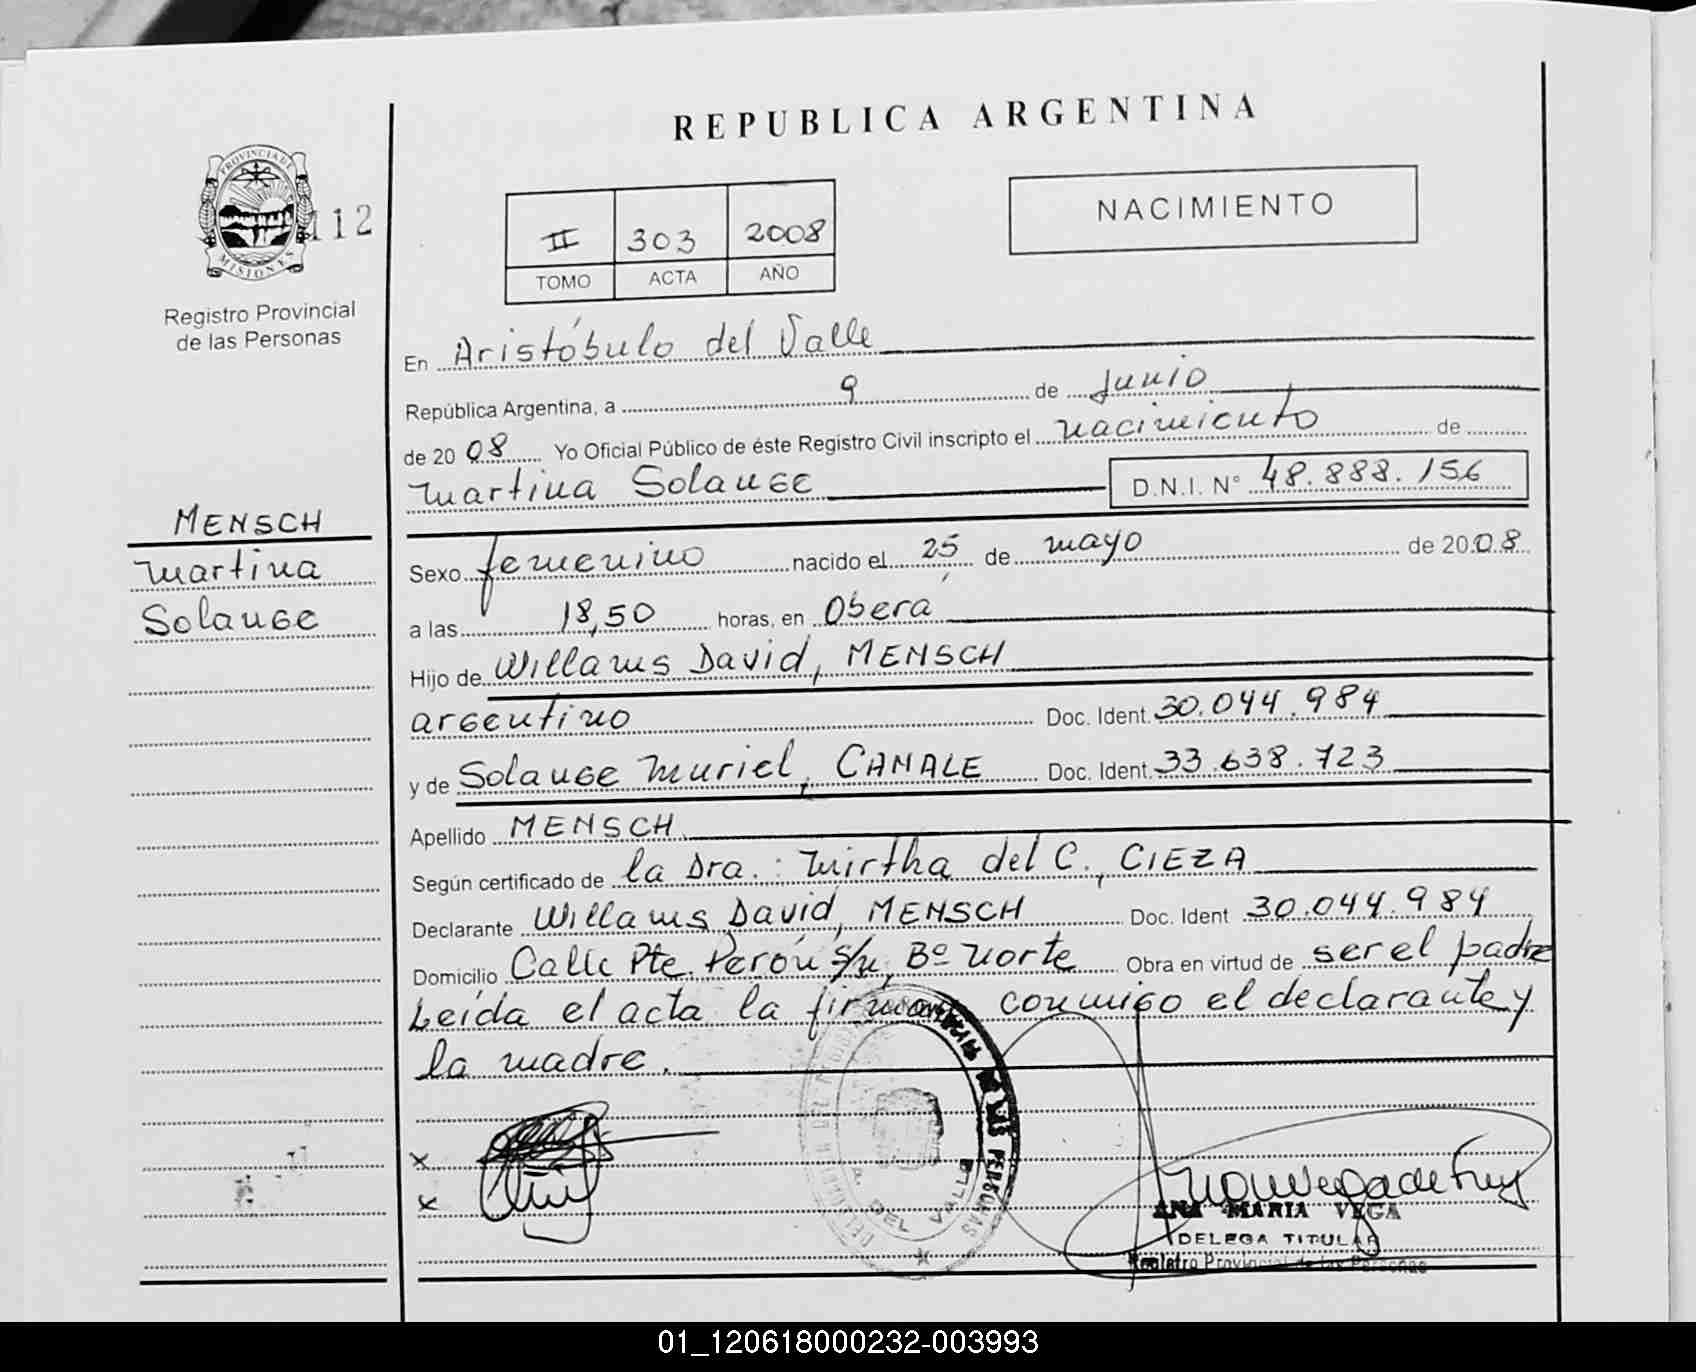 REPUBLICA ARGENTINA
PROVINCIA DE
MISIONES
112
Registro Provincial
de las Personas
II 303 2008
TOMO ACTA AÑO
NACIMIENTO
En Aristóbulo del Valle
República Argentina, a 9 de Junio
de 2008 Yo Oficial Público de éste Registro Civil inscripto el nacimiento de
Martina Solange D.N.I. N° 48.888.156
MENSCH
Martina
Solange
Sexo femenino nacido el 25 de mayo de 2008
a las 18,50 horas, en Oberá
Hijo de Willams David, MENSCH
argentino Doc. Ident. 30.044.984
y de Solange Muriel, CANALE Doc. Ident. 33.638.723
Apellido MENSCH
Según certificado de la Dra.: Mirtha del C., CIEZA
Declarante Willams David, MENSCH Doc. Ident 30.044.984
Domicilio Calle Pte. Perón s/n, Bº Norte Obra en virtud de ser el padre
Leída el acta la firman conmigo el declarante y
la madre.
x
x
DE LAS PERSONAS
A. DEL VALLE
ANA MARIA VEGA
DELEGA TITULAR
Registro Provincial de las Personas
01_120618000232-003993